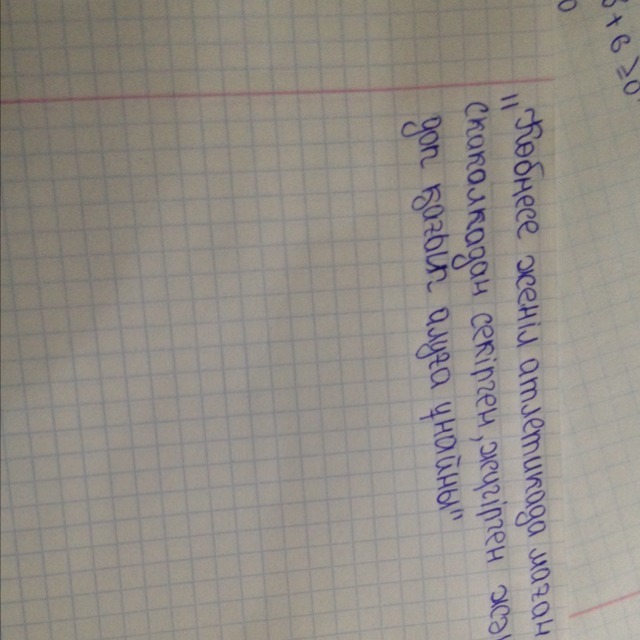 +6 ≥0
"Көбнесе жеңіл атлетикада маған
скакалкадан секірген, жүгірген
доп қағып алуға ұнайды"